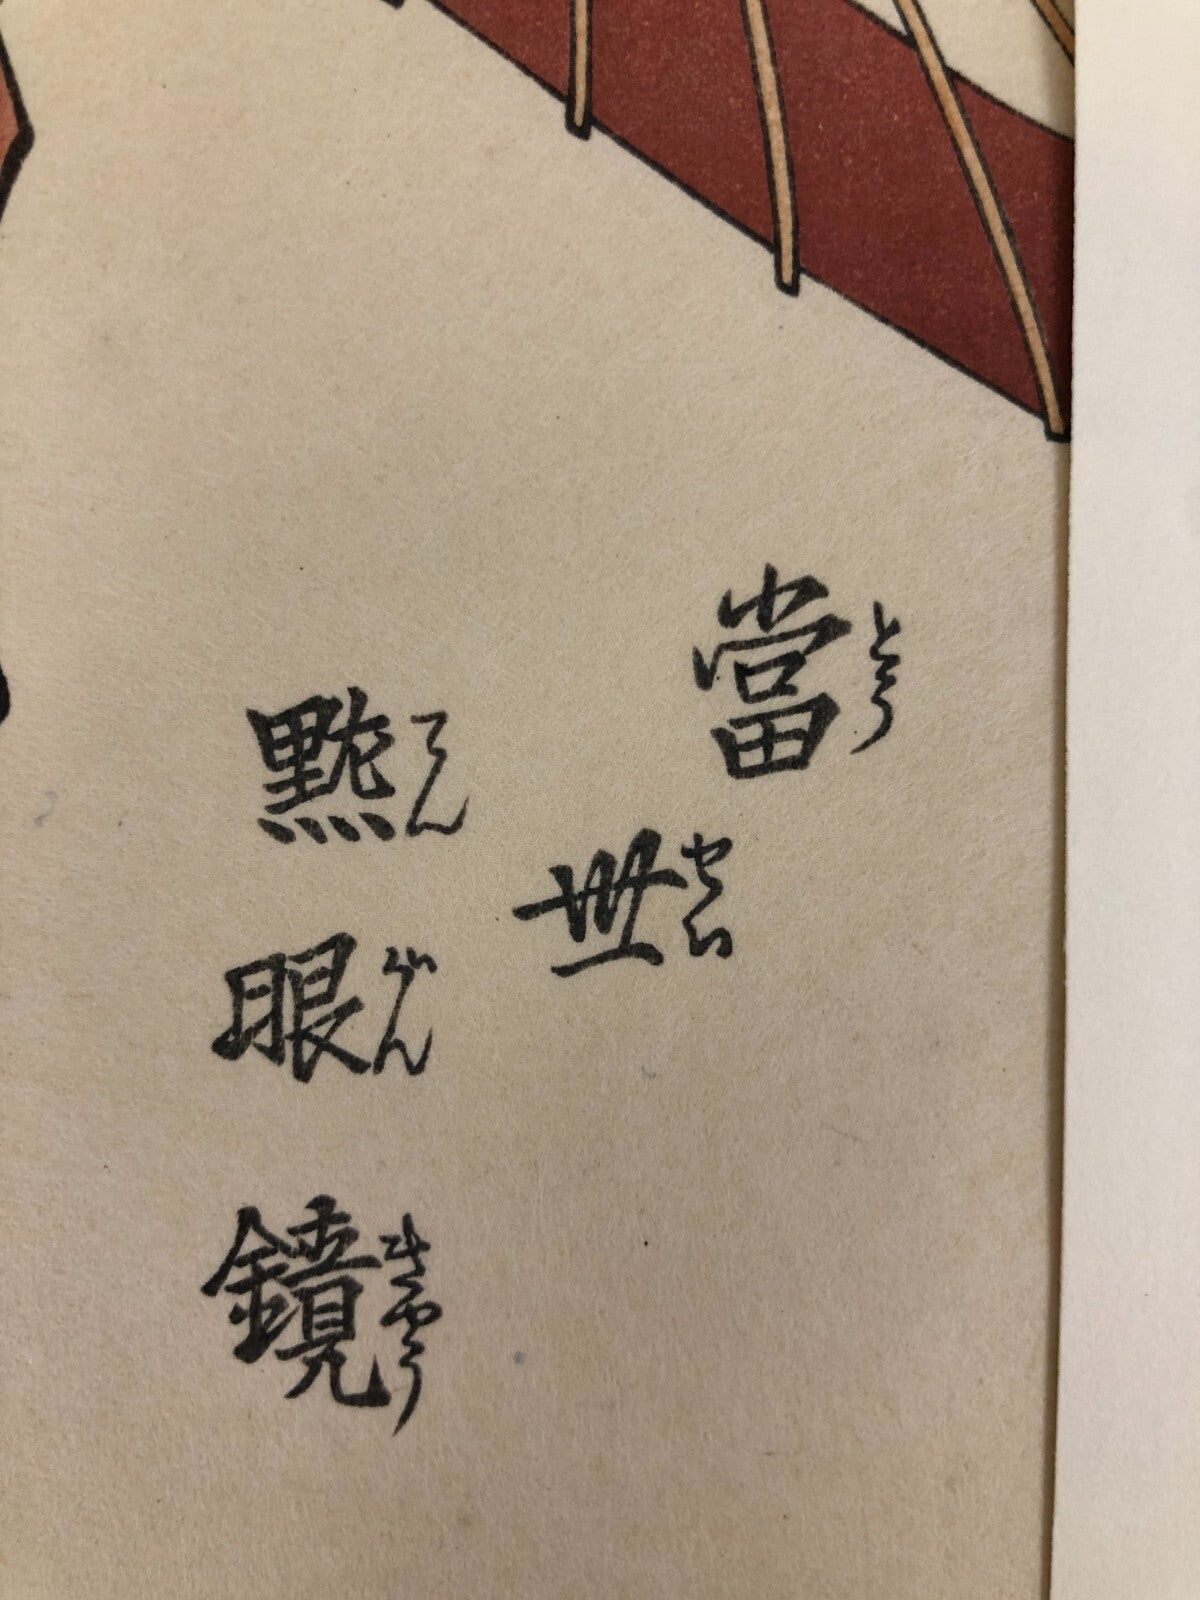 當世
とうせい
點眼鏡
てんがんきやう